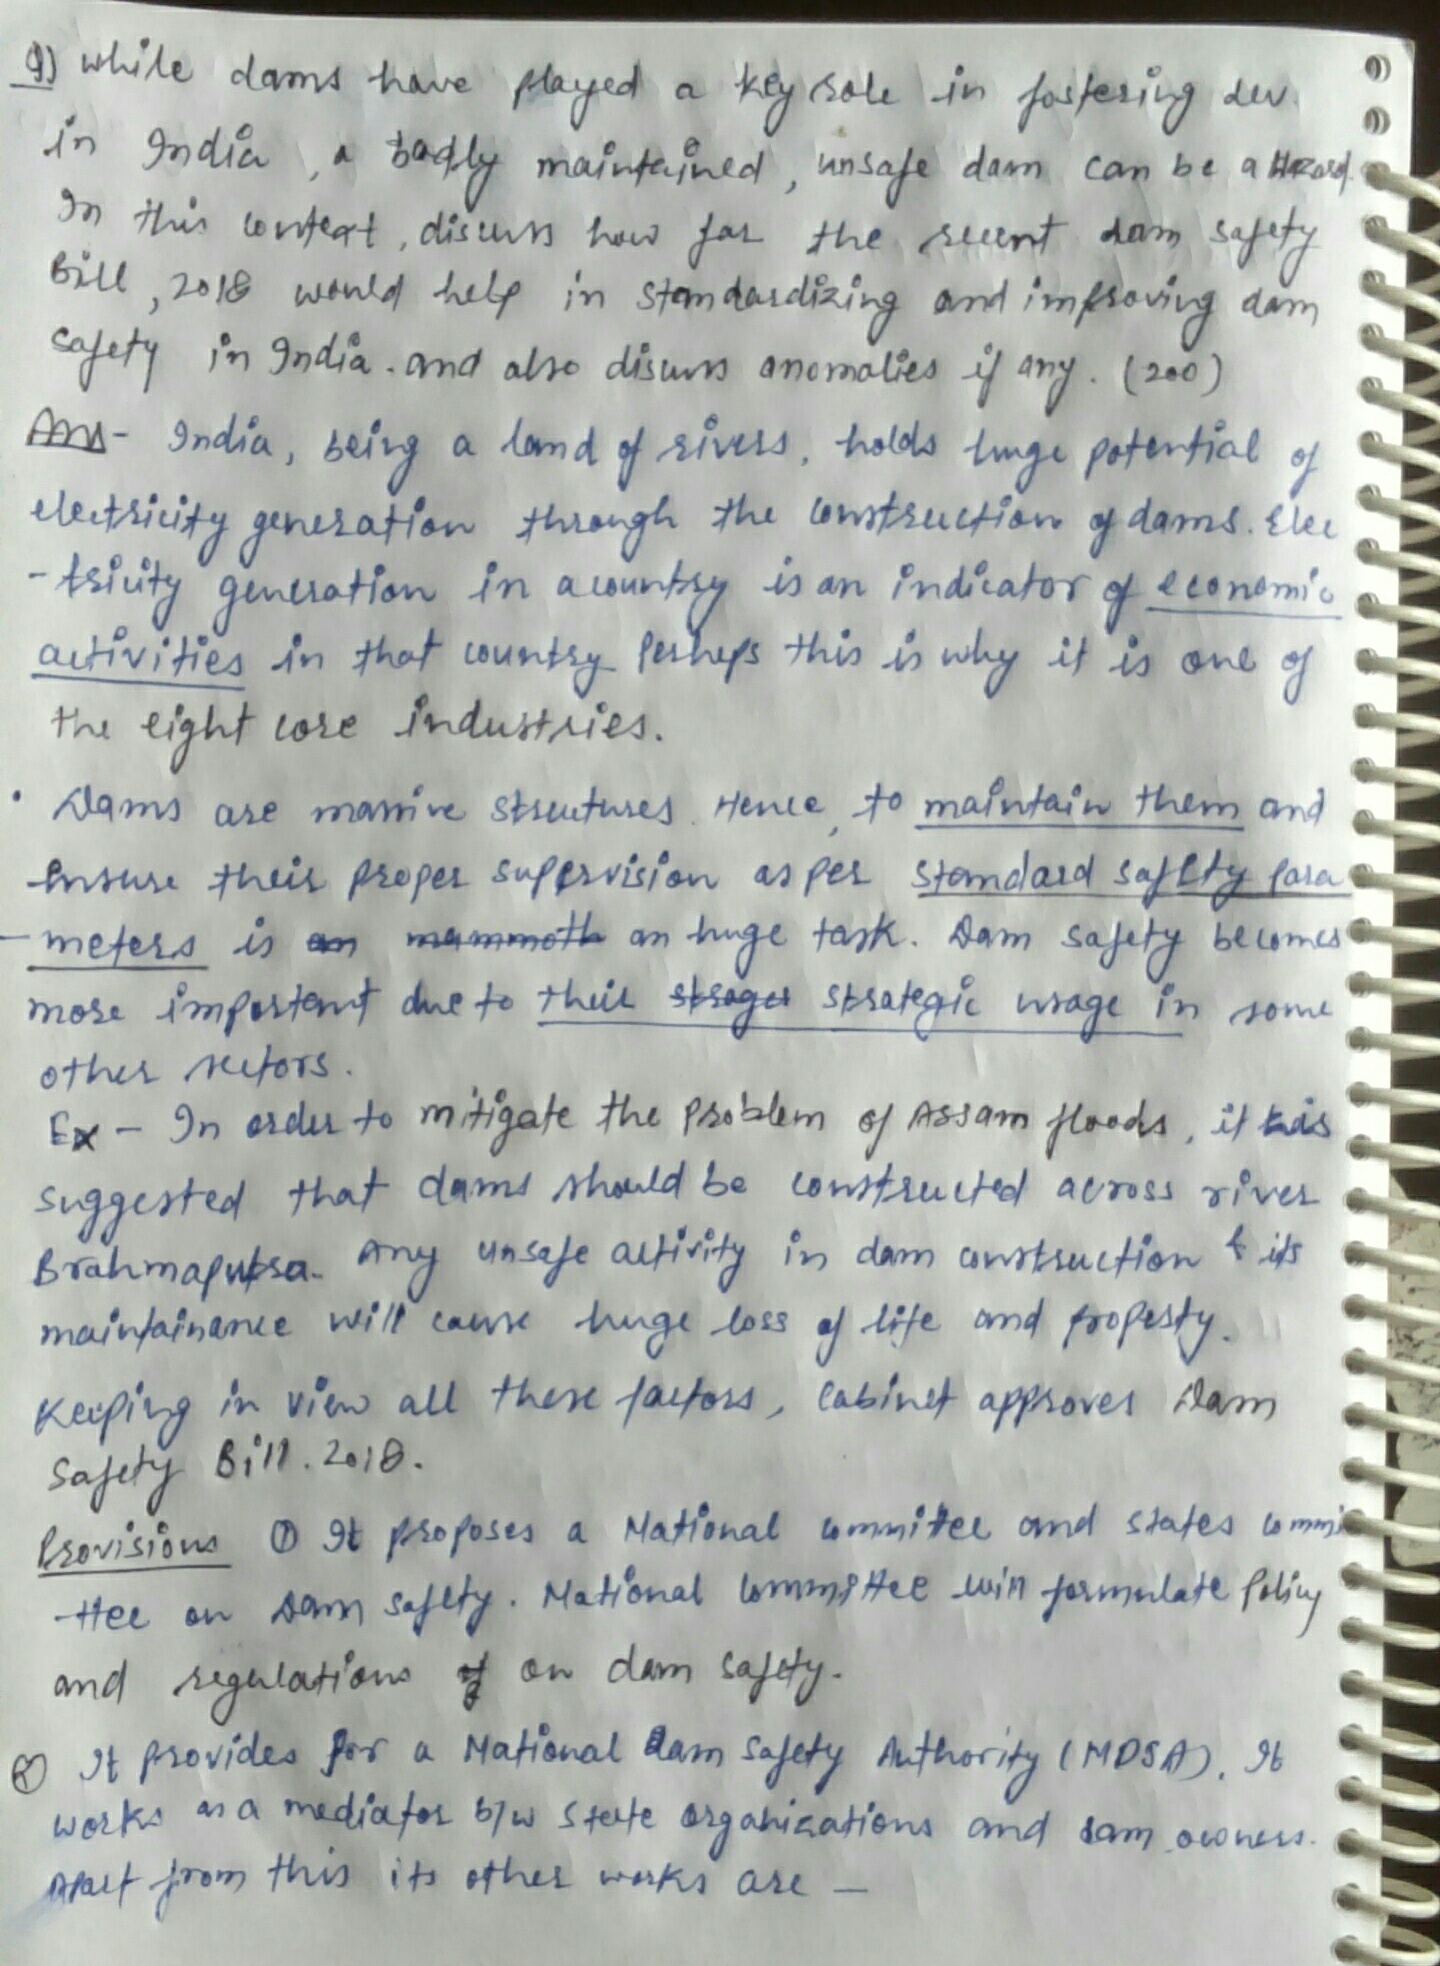 Q) While dams have played a key role in fostering dev.
in India, a badly maintained, unsafe dam can be a Hazard.
In this context, discuss how far the recent dam safety
Bill, 2018 would help in standardizing and improving dam
safety in India. and also discuss anomalies if any. (200)
Ans- India, being a land of rivers, holds huge potential of
electricity generation through the construction of dams. Elec
-tricity generation in a country is an indicator of economic
activities in that country. Perheps this is why it is one of
the eight core industries.
• Dams are massive structures. Hence, to maintain them and
ensure their proper supervision as per standard safety para
-meters is an mammoth an huge task. Dam safety becomes
more important due to their strategic usage in some
other sectors.
Ex - In order to mitigate the problem of Assam floods, it is
suggested that dams should be constructed across river
Brahmaputra. Any unsafe activity in dam construction & its
maintainance will cause huge loss of life and property.
Keeping in view all these factors, Cabinet approves Dam
Safety Bill. 2018.
Provisions ① It proposes a National committee and states commi
-ttee on Dam safety. National Committee will formulate policy
and regulations of on dam safety.
② It provides for a National Dam Safety Authority (NDSA). It
works as a mediator b/w state organizations and dam owners.
Apart from this its other works are -